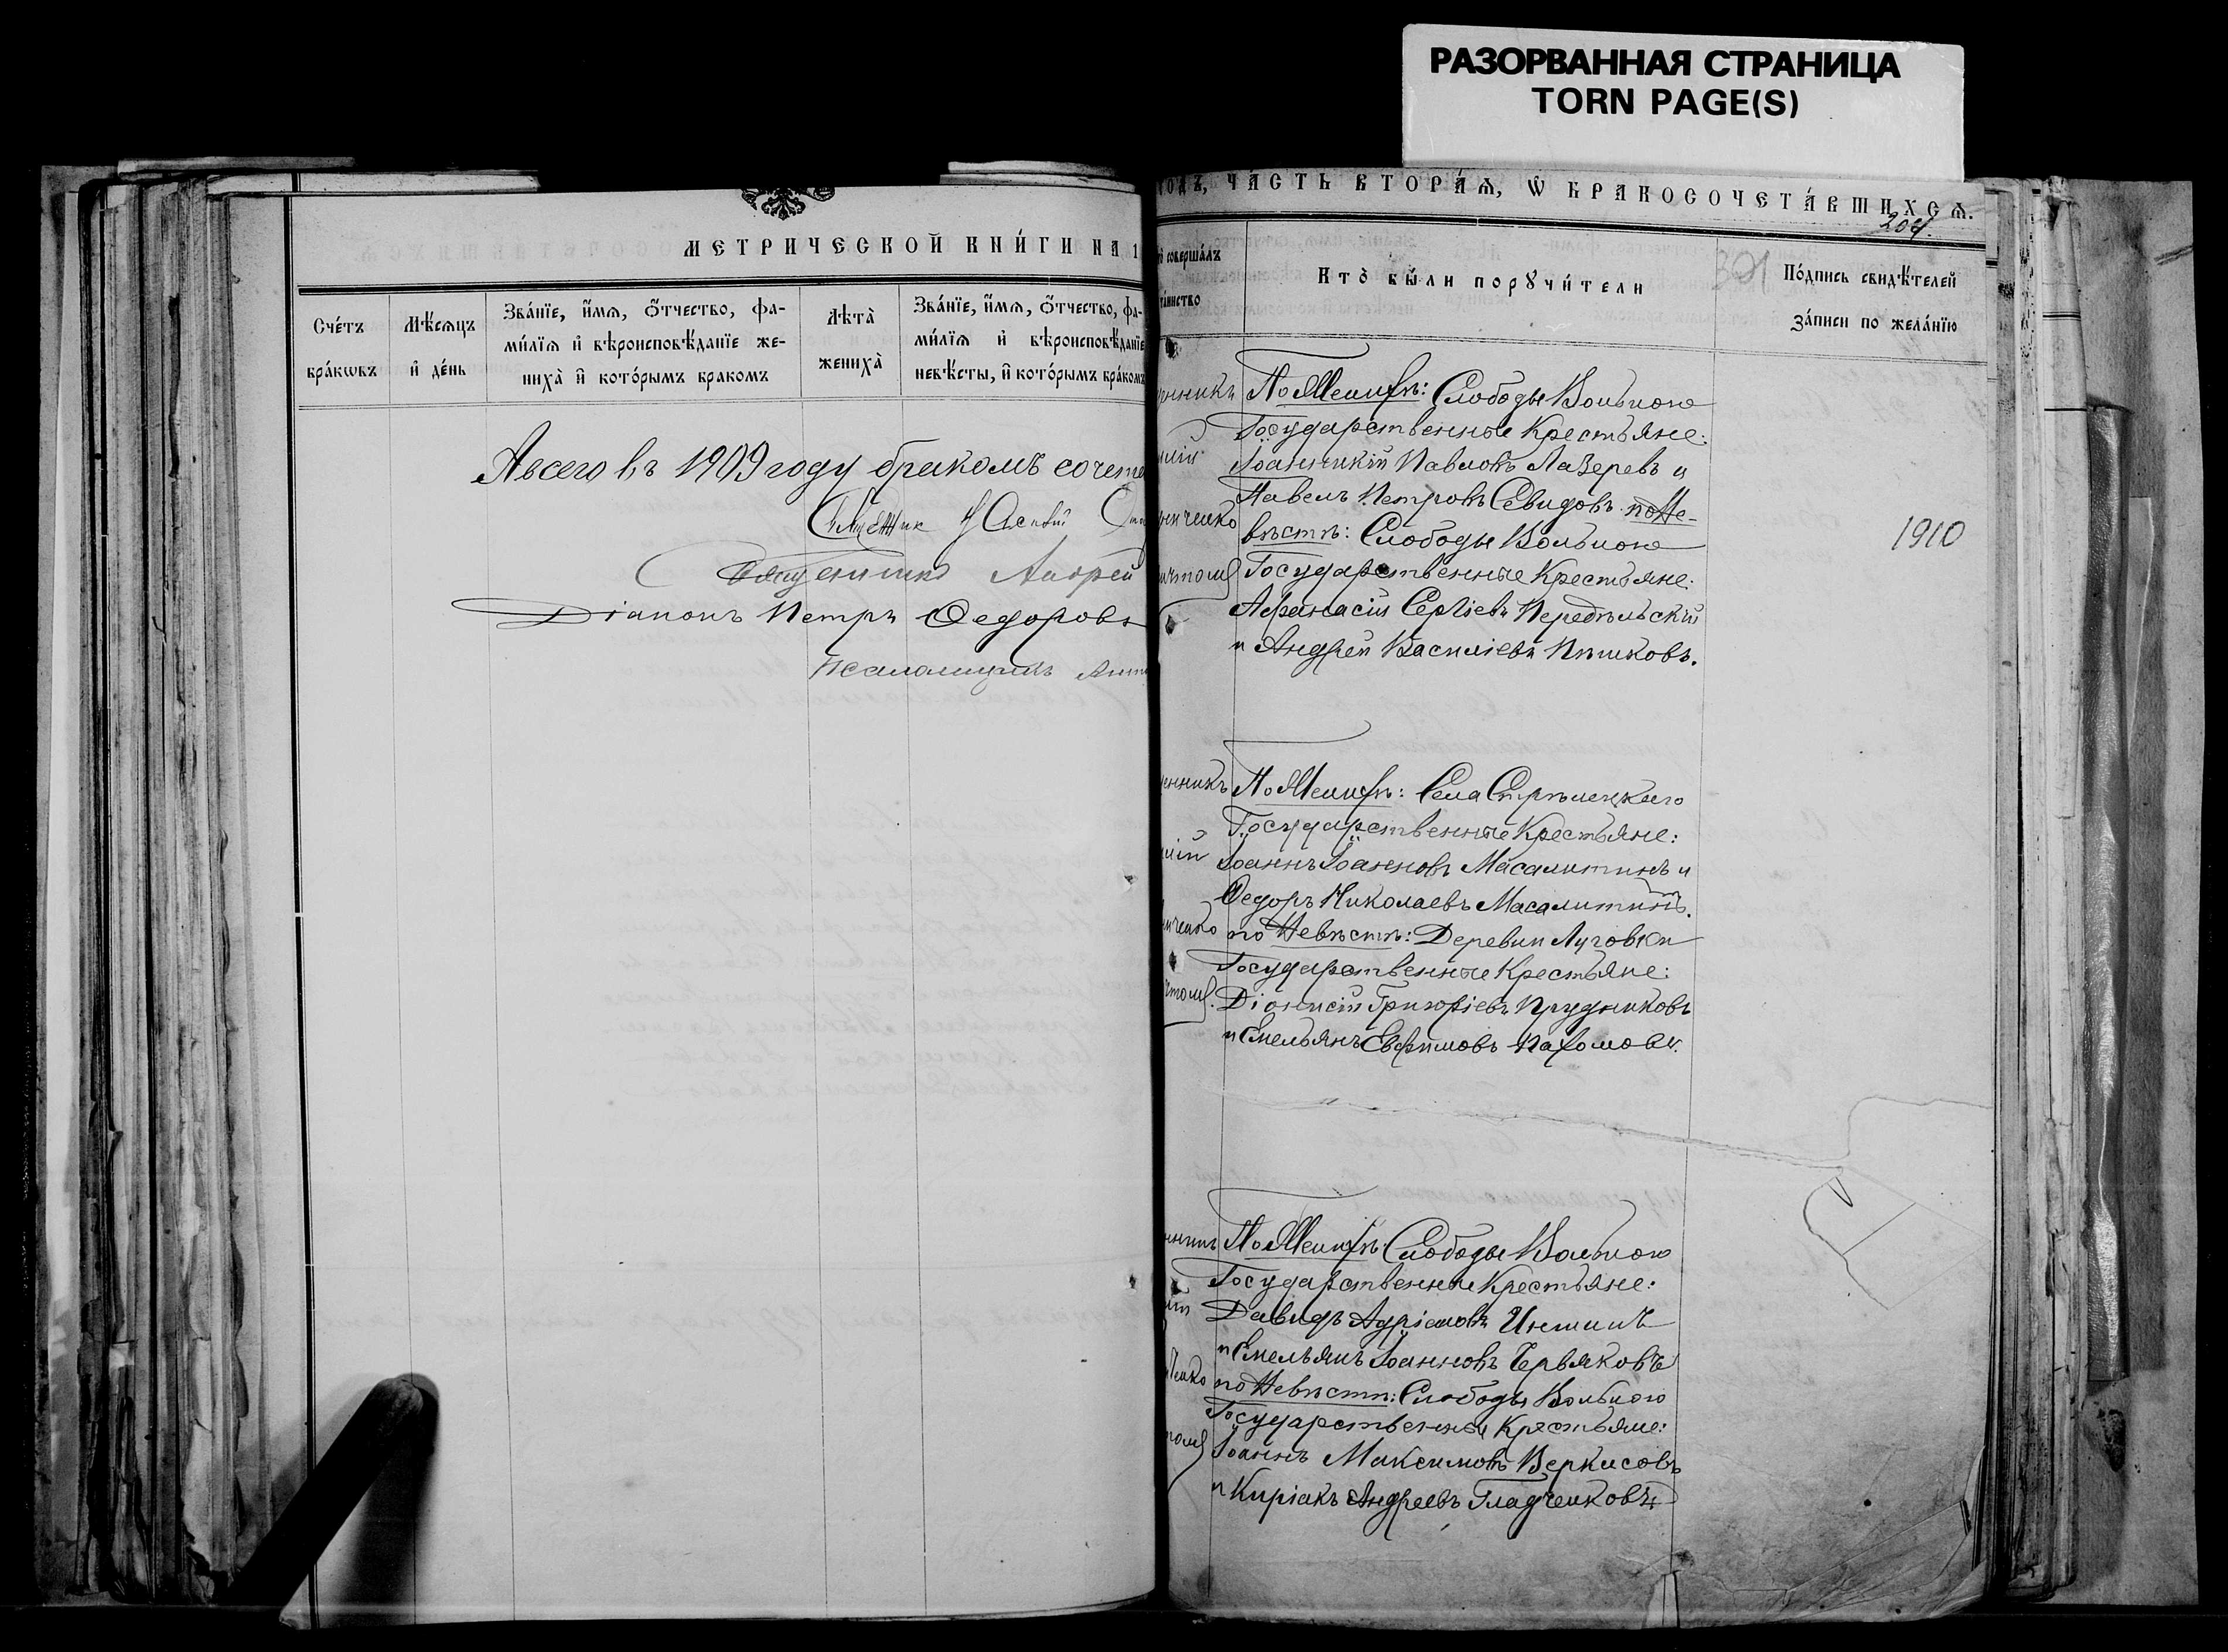 РАЗОРВАННАЯ СТРАНИЦА
TORN PAGE(S)
МЕТРИЧЕСКОЙ КНИ́ГИ НА 1
Сче́тъ бра́кωвъ
Мѣ́сяцъ и҆ де́нь
Зва́нїе, и҆́мѧ, ѻ҆́тчество, фа-
ми́лїѧ и҆ вѣроисповѣ́данїе же-
ниха̀ и҆ кото́рымъ бракомъ
Лѣта̀ жениха̀
Зва́нїе, и҆́мѧ, ѻ҆́тчество, фа-
ми́лїѧ и҆ вѣроисповѣ́данїе
невѣ́сты, и҆ кото́рымъ бра́комъ
А всего въ 1909 году бракомъ сочета
Священник
Священникъ Андрей
Діаконъ Петръ Федоровъ
Псаломщикъ
ГОДЪ, ЧА́СТЬ ВТОРА́Ѧ, Ѡ҆ БРАКОСОЧЕТА́ВШИХСѦ.
204.
301
совершáлъ
та́инство
Кто̀ бы́ли порꙋчи́тели
По́дпись свидѣ́телей
за́писи по жела́нїю
По Женихѣ: Слободы Вольною
Государственные Крестьяне:
Іоанникій Павловъ Лазеревъ и
Павелъ Петровъ Севидовъ по Не-
вѣстѣ: Слободы Вольною
Государственные Крестьяне:
Афанасій Сергіевъ Передѣльскій
и Андрей Василіевъ
1910
По Женихѣ: Села Стрѣлецкаго
Государственные Крестьяне:
Іоаннъ Іоанновъ Масалитинъ и
Федоръ Николаевъ Масалитинъ.
по Невѣстѣ: Деревни Луговки
Государственные Крестьяне:
Діонисій Григоріевъ Прудниковъ
и Емельянъ Евфимовъ Пахомовъ.
По Женихѣ: Слободы Вольною
Государственные Крестьяне:
Давидъ Адріановъ Иншинъ
и Емельянъ Іоанновъ Червяковъ
по Невѣстѣ: Слободы Вольною
Государственные Крестьяне:
Іоаннъ Максимовъ Веркисовъ
и Киріакъ Андреевъ Гладченковъ